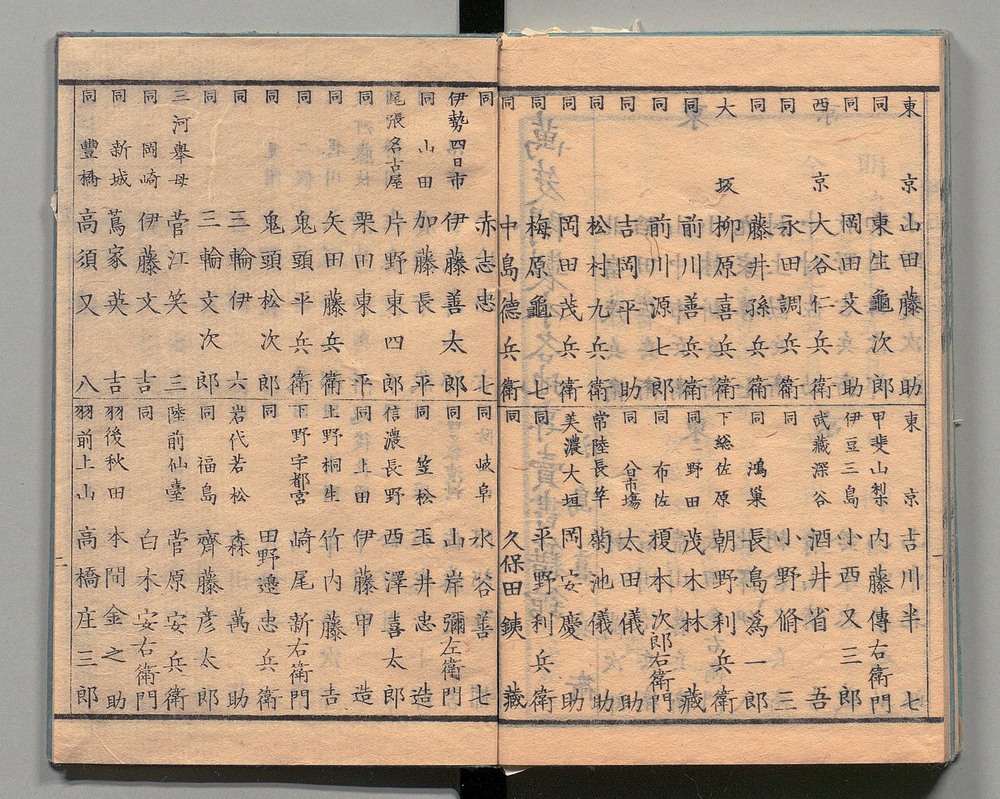 東京 山田藤助
同 東生龜次郎
同 岡田文助
西京 大谷仁兵衛
同 永田調兵衛
同 藤井孫兵衛
大坂 柳原喜兵衛
同 前川善兵衛
同 前川源七郎
同 吉岡平助
同 松村九兵衛
同 岡田茂兵衛
同 梅原龜七
同 中島德兵衛
東京 吉川半七
甲斐山梨 内藤傳右衛門
伊豆三島 小西又三郎
武藏深谷 酒井省吾
同 小野脩三
同 鴻巣 長島爲一郎
下総佐原 朝野利兵衛
同 野田 茂木林藏
同 布佐 榎本次郎右衛門
同 市塲 太田儀助
常陸長竿 菊池儀助
美濃大垣 岡安慶助
同 平野利兵衛
同 久保田銕藏
一
同 赤志忠七
伊勢四日市 伊藤善太郎
同 山田 加藤長平
尾張名古屋 片野東四郎
同 栗田東平
同 矢田藤兵衛
同 鬼頭平兵衛
同 鬼頭松次郎
同 三輪伊六
同 三輪文次郎
三河擧母 菅江笑三
同 岡崎 伊藤文吉
同 新城 蔦家英吉
同 豐橋 高須又八
同 岐阜 水谷善七
同 笠松 山岸彌左衛門
同 玉井忠造
信濃長野 西澤喜太郎
同 上田 伊藤甲造
上野桐生 竹内藤吉
下野宇都宮 崎尾新右衛門
同 田野邊忠兵衛
岩代若松 森萬助
同 福島 齊藤彦太郎
陸前仙臺 菅原安兵衛
同 白木安右衛門
羽後秋田 本間金之助
羽前上山 高橋庄三郎
二